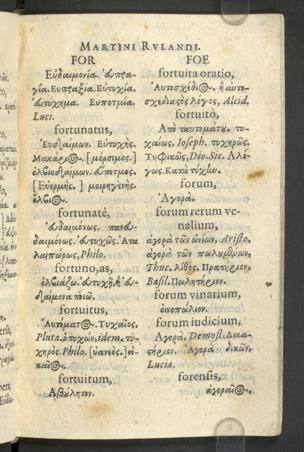 MARTINI RVLANDI.
FOR
Εὐδαιμονία. εὐπραγία.
Εὐπραξία. Εὐτυχία,
εὐτύχημα. Εὐποτμία.
Luci.
fortunatus,
Εὐδαίμων. Εὐτυχής.
Μακάριος. [μόρσιμος.]
ὀλβιοδαίμων. εὔποτμος.
[Εὐερμής.] μοιρηγενής.
ὄλβιος.
fortunatè,
εὐδαιμόνως. πανευδαιμόνως.
εὐτυχῶς.
Philo.
fortuno,as,
ὀλβιάζω. εὐτυχῆ, ἢ
fortuitus,
Αὐτόματος. Τυχαῖος,
Pluta. idem. τυχηρός,
Philo.
fortuitum,
Ἀβούλητον.
FOE
fortuita oratio,
Αὐτοσχέδιος. ἢ αὐτοσχεδιαστὸς
λόγος, Alcid.
fortuitò,
Ἀπὸ ταυτομάτου. τυχαίως.
Ioseph. τυχηρῶς.
Τυφικῶς, Dio. Sic. Ἀλόγως.
Κατὰ τύχην.
forum,
Ἀγορά.
forum rerum venalium,
ἀγορὰ τῶν ὠνίων, Aristo.
ἀγορὰ τῶν πωλουμένων,
Thuc. λίθος. Πρατήριον,
Basil. Πωλητήριον.
forum vinarium,
οἰνοπώλιον.
forum iudicium,
Ἀγορά, Demost. Δικαστήριον.
Ἀγορὰ δικῶν,
Lucia.
forensis,
ἀγοραῖος.